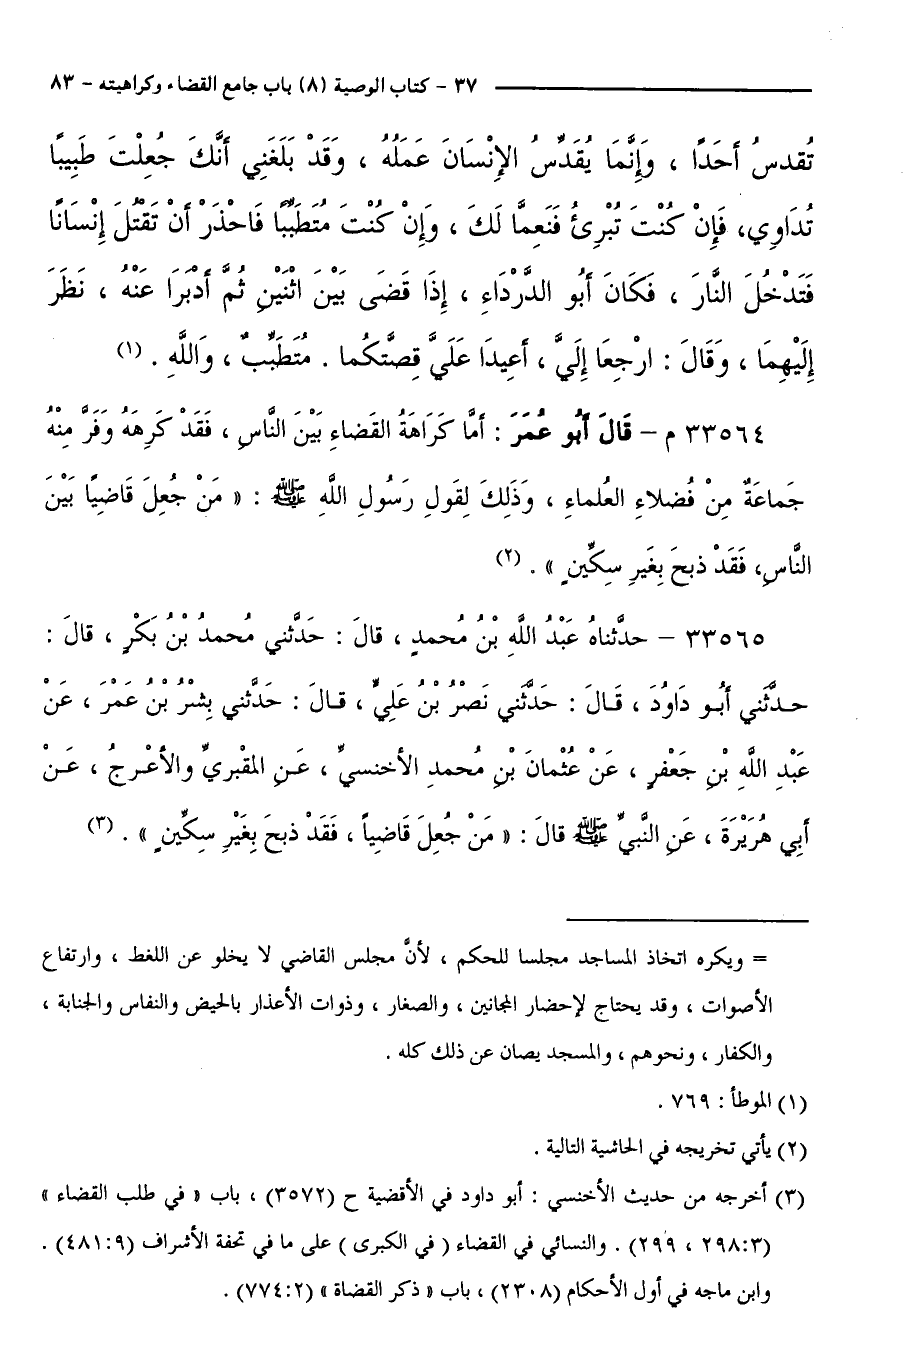 ٣٧ - كتاب الوصية (٨) باب جامع القضاء وكراهيته - ٨٣
تُقدسُ أحَدًا ، وَإِنَّمَا يُقَدِّسُ الإِنْسَانَ عَمَلُهُ ، وَقَدْ بَلَغَنِي أَنَّكَ جُعِلْتَ طَبِيبًا
تُدَاوِي، فَإِنْ كُنْتَ تُبْرِئُ فَنَعِمًّا لَكَ ، وَإِنْ كُنْتَ مُتَطَبِّبًا فَاحْذَرْ أنْ تَقْتُلَ إِنْسَانًا
فَتَدْخُلَ النَّارَ ، فَكَانَ أَبُو الدَّرْدَاءِ ، إِذَا قَضَى بَيْنَ اثْنَيْنِ ثُمَّ أَدْبَرَا عَنْهُ ، نَظَرَ
إِلَيْهِمَا ، وَقَالَ : ارْجِعَا إِلَيَّ ، أَعِيدَا عَلَيَّ قِصَّتَكُما . مُتَطَبِّبٌ ، وَاللَّهِ . (١)
٣٣٥٦٤ م - قَالَ أَبُو عُمَرَ : أَمَّا كَرَاهَةُ القَضَاءِ بَيْنَ النَّاسِ ، فَقَدْ كَرِهَهُ وَفَرَّ مِنْهُ
جَمَاعَةٌ مِنْ فُضلاءِ العُلماءِ ، وَذَلِكَ لِقَولِ رَسُولِ اللَّهِ ﷺ : « مَنْ جُعِلَ قَاضِيًا بَيْنَ
النَّاسِ، فَقَدْ ذبحَ بِغَيرِ سِكِّينٍ » . (٢)
٣٣٥٦٥ - حدَّثناهُ عَبْدُ اللَّهِ بْنُ مُحمدٍ ، قالَ : حَدَّثني مُحمدُ بْنُ بَكْرٍ ، قالَ :
حدَّثَني أَبُو دَاوُدَ ، قَالَ : حَدَّثَني نَصْرُ بْنُ عَلِيٍّ ، قَالَ : حَدَّثني بِشْرُ بْنُ عُمَرَ ، عَنْ
عَبْدِ اللَّهِ بْنِ جَعْفَرٍ ، عَنْ عُثْمَانَ بْنِ مُحمدٍ الأخنسيِّ ، عَنِ المَقْبريِّ والأعْرجِ ، عَنْ
أَبِي هُرَيْرَةَ ، عَنِ النَّبيِّ ﷺ قالَ : « مَنْ جُعِلَ قَاضِياً ، فَقَدْ ذبحَ بِغَيْرِ سكِّينٍ » . (٣)
= ويكره اتخاذ المساجد مجلسا للحكم ، لأنَّ مجلس القاضي لا يخلو عن اللغط ، وارتفاع
الأصوات ، وقد يحتاج لإحضار المجانين ، والصغار ، وذوات الأعذار بالحيض والنفاس والجنابة ،
والكفار ، ونحوهم ، والمسجد يصان عن ذلك كله .
(١) الموطأ : ٧٦٩ .
(٢) يأتي تخريجه في الحاشية التالية .
(٣) أخرجه من حديث الأخنسي : أبو داود في الأقضية ح (٣٥٧٢) ، باب « في طلب القضاء »
(٢٩٨:٣ ، ٢٩٩) . والنسائي في القضاء ( في الكبرى ) على ما في تحفة الأشراف (٤٨١:٩) .
وابن ماجه في أول الأحكام (٢٣٠٨) ، باب « ذكر القضاة » (٧٧٤:٢) .